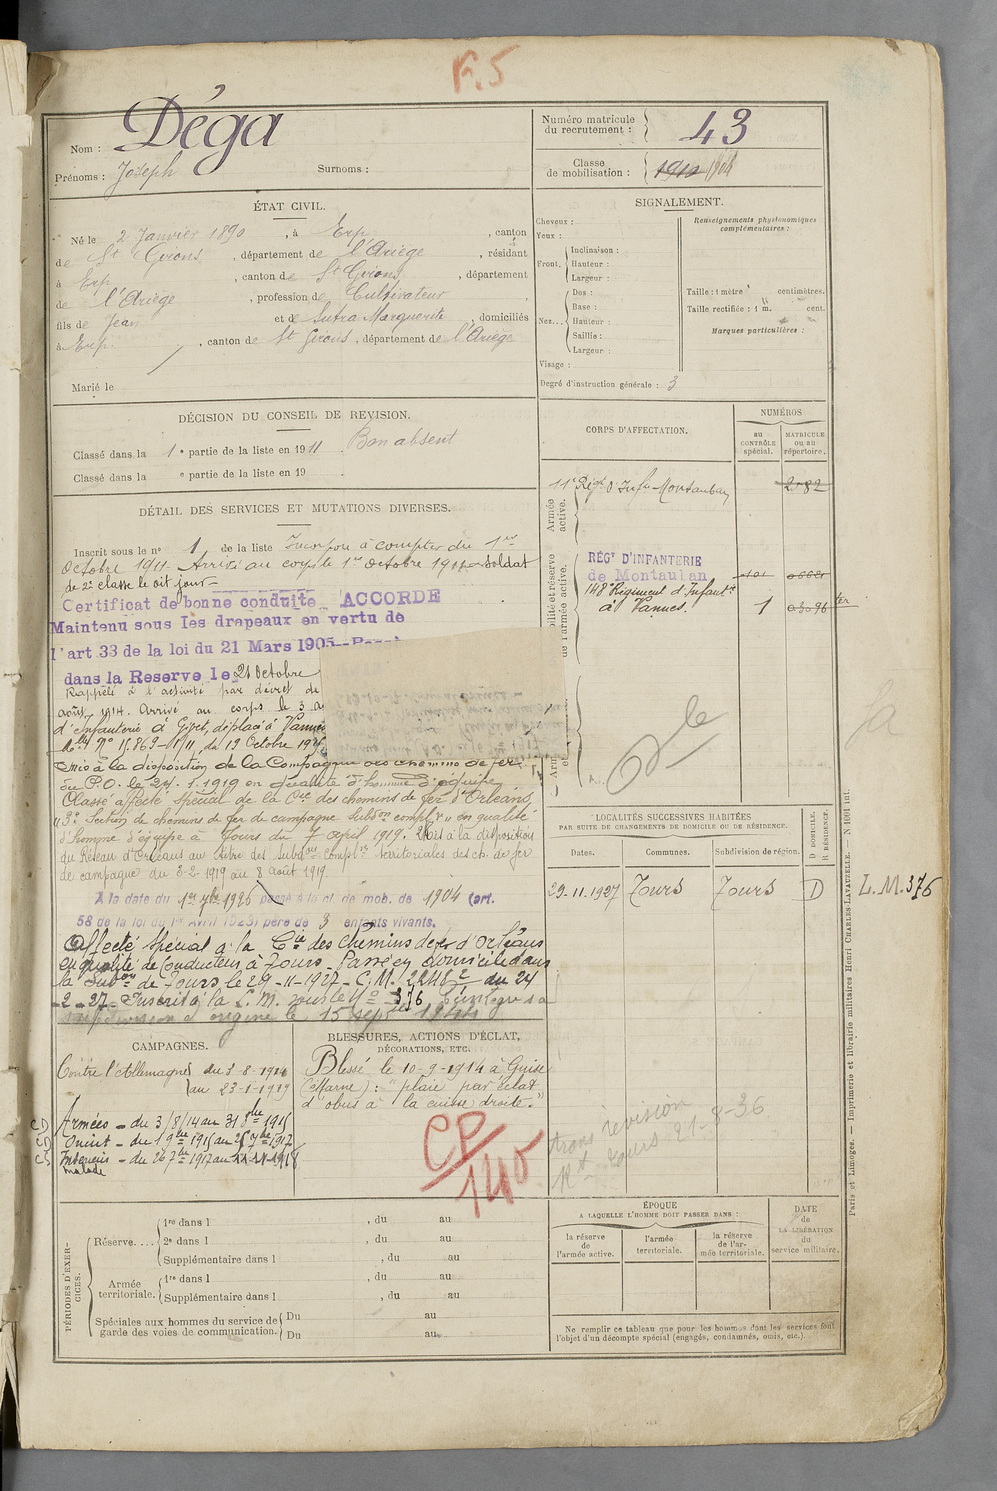 F.5
Nom : Déga
Prénoms : Joseph Surnoms :
Numéro matricule du recrutement : 43
Classe de mobilisation : 1910 1904
ÉTAT CIVIL.
Né le 2 Janvier 1890, à Erp, canton
de St Girons, département de l'Ariège, résidant
à Erp, canton de St Girons, département
de l'Ariège, profession de Cultivateur
fils de Jean et de Sutra Marguerite, domiciliés
à Erp, canton de St Girons, département de l'Ariège
Marié le
SIGNALEMENT.
Cheveux :
Yeux :
Front. Inclinaison :
Hauteur :
Largeur :
Nez... Dos :
Base :
Hauteur :
Saillie :
Largeur :
Visage :
Degré d'instruction générale : 3
Renseignements physionomiques complémentaires :
Taille : 1 mètre centimètres.
Taille rectifiée : 1 m. cent.
Marques particulières :
DÉCISION DU CONSEIL DE REVISION.
Classé dans la 1e partie de la liste en 1911. Bon absent
Classé dans la e partie de la liste en 19 .
DÉTAIL DES SERVICES ET MUTATIONS DIVERSES.
Inscrit sous le no 1 de la liste Incorporé à compter du 1er
Octobre 1911. Arrivé au corps le 1er Octobre 1911 Soldat
de 2e classe le dit jour
Certificat de bonne conduite ACCORDÉ
Maintenu sous les drapeaux en vertu de
l'art 33 de la loi du 21 Mars 1905
dans la Reserve le 21 Octobre
Rappelé à l'activité par décret de
août 1914. Arrivé au corps le 3
d'Infanterie à Givet, déplacé à Vannes
No 15.869-1/11, du 19 Octobre
Mis à la disposition de la Compagnie des chemins de fer
du P.O. le 24.1.1919 en qualité d'homme d'équipe
Classé affecté spécial de la Cie des chemins de fer d'Orléans,
"3e Section de chemins de fer de campagne Subdon complre" en qualité
d'homme d'équipe à Tours du 7 avril 1919. Mis à la disposition
du Réseau d'Orléans au titre des Subdons complres territoriales des ch. de fer
de campagne du 3-2-1919 au 8 Août 1919
A la date du 1er 7bre 1926 passé à la cl. de mob. de 1904 (art.
58 de la loi du 1er Avril 1923) père de 3 enfants vivants.
Affecté spécial à la Cie des Chemins de fer d'Orléans
en qualité de Conducteur, à Tours. Passé en domicile dans
la Subon de Tours le 29-11-1927 - C.M. 22482 du 24
-2-27- Inscrit à la L.M. sous le No 376 Réintègre sa
subdivision d'origine le 15 sepbre 1944
CORPS D'AFFECTATION.
NUMÉROS
AU CONTRÔLE spécial.
MATRICULE ou au répertoire.
Armée active.
11e Régt d'Infie Montauban 2982
l'armée active.
RÉGt D'INFANTERIE
de Montauban
148e Régiment d'Infantie
à Vannes. 1
LOCALITÉS SUCCESSIVES HABITÉES
PAR SUITE DE CHANGEMENTS DE DOMICILE OU DE RÉSIDENCE.
Dates. Communes. Subdivision de région. D DOMICILE. R RÉSIDENCE.
29-11-1927 Tours Tours D L.M. 376
CAMPAGNES.
Contre l'Allemagne du 3-8-1914
au 23-1-1919
Armées - du 3/8/14 au 31 8bre 1915
Orient - du 1 9bre 1915 au 25 7bre 1917
Intérieur - du 26 7bre 1917 au 11-11-1918
malade
BLESSURES, ACTIONS D'ÉCLAT,
DÉCORATIONS, ETC.
Blessé le 10-9-1914 à Guise
(Marne) : "plaie par éclat
d'obus à la cuisse droite."
CP/140
trans révision
Rt Tours 21-8-36
PÉRIODES D'EXERCICES.
Réserve.... 1re dans l , du au
2e dans l , du au
Supplémentaire dans l , du au
Armée territoriale. 1re dans l , du au
Supplémentaire dans l , du au
Spéciales aux hommes du service de garde des voies de communication. Du au
Du au
ÉPOQUE
A LAQUELLE L'HOMME DOIT PASSER DANS :
la réserve de l'armée active.
l'armée territoriale.
la réserve de l'armée territoriale.
DATE de LA LIBÉRATION du service militaire.
Ne remplir ce tableau que pour les hommes dont les services font
l'objet d'un décompte spécial (engagés, condamnés, omis, etc.).
Paris et Limoges. — Imprimerie et librairie militaires Henri CHARLES-LAVAUZELLE. — N 1001 int.